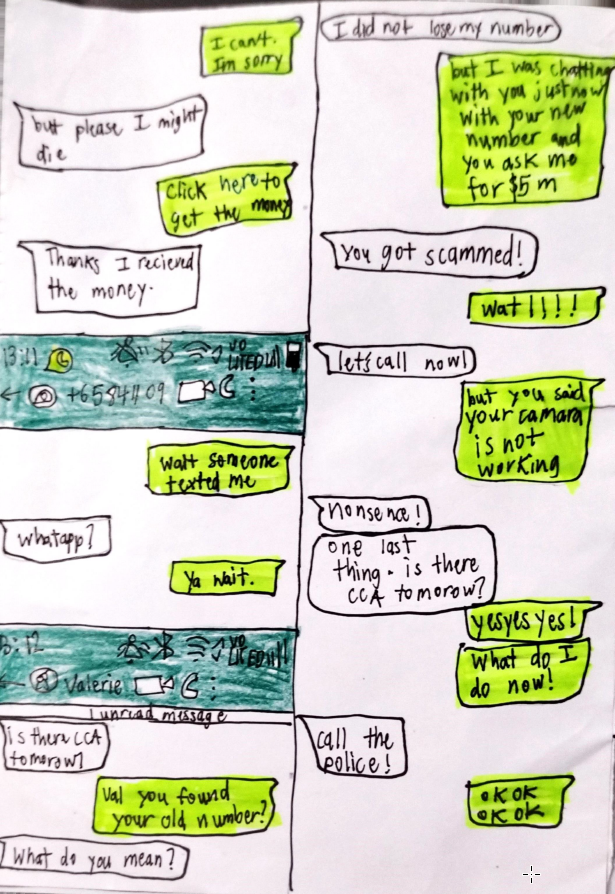 I can't.
I'm sorry
but please I might
die
click here to
get the money
Thanks I recieved
the money.
13:11
LTED
+658411 09
wait someone
texted me
whatapp?
Ya wait.
3:12
LTED
Valerie
1 unread message
is there CCA
tomorow?
Val you found
your old number?
What do you mean?
I did not lose my number
but I was chatting
with you just now
with your new
number and
you ask me
for $5 m
You got scammed!
wat!!!!
let's call now!
but you said
your camara
is not
working
nonsence!
one last
thing. is there
CCA tomorow?
yesyes yes!
What do I
do now!
call the
police!
OK OK
OK OK